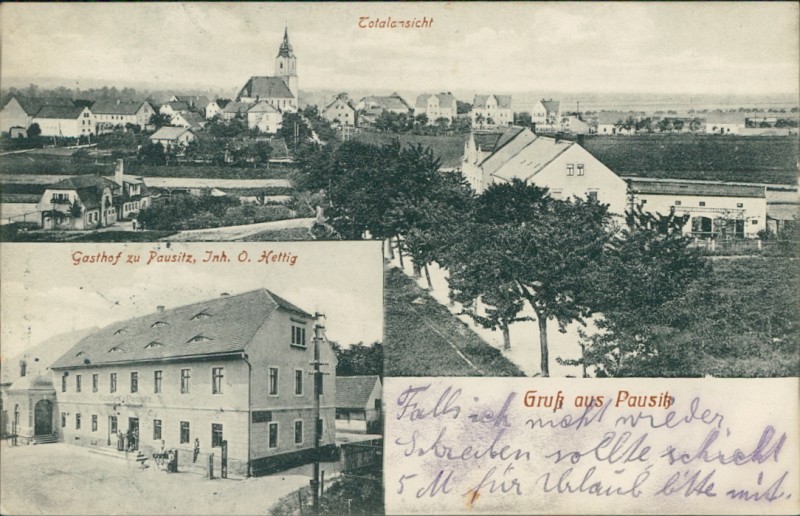 Totalansicht
Gasthof zu Pausitz, Inh. O. Hettig
Gruß aus Pausitz
Falls ich nicht wieder
Schreiben sollte schickt
5 M für Urlaub bitte mit.